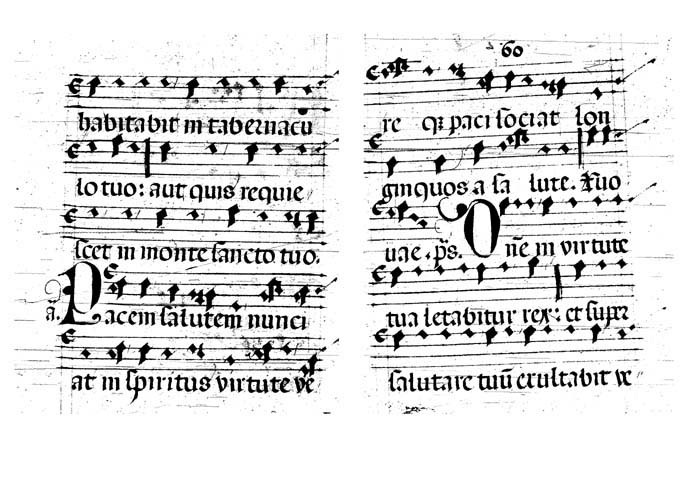 habitabit in tabernacū
lo tuo: aut quis requie
scet in monte sancto tuo.
a. Pacem salutem nunci
at in spiritus virtute ve
60
re qz paci sociat lon
ginquos a sa lute.
uae. ps. One in virtute
tua letabitur rex: et super
salutare tuū exultabit ve